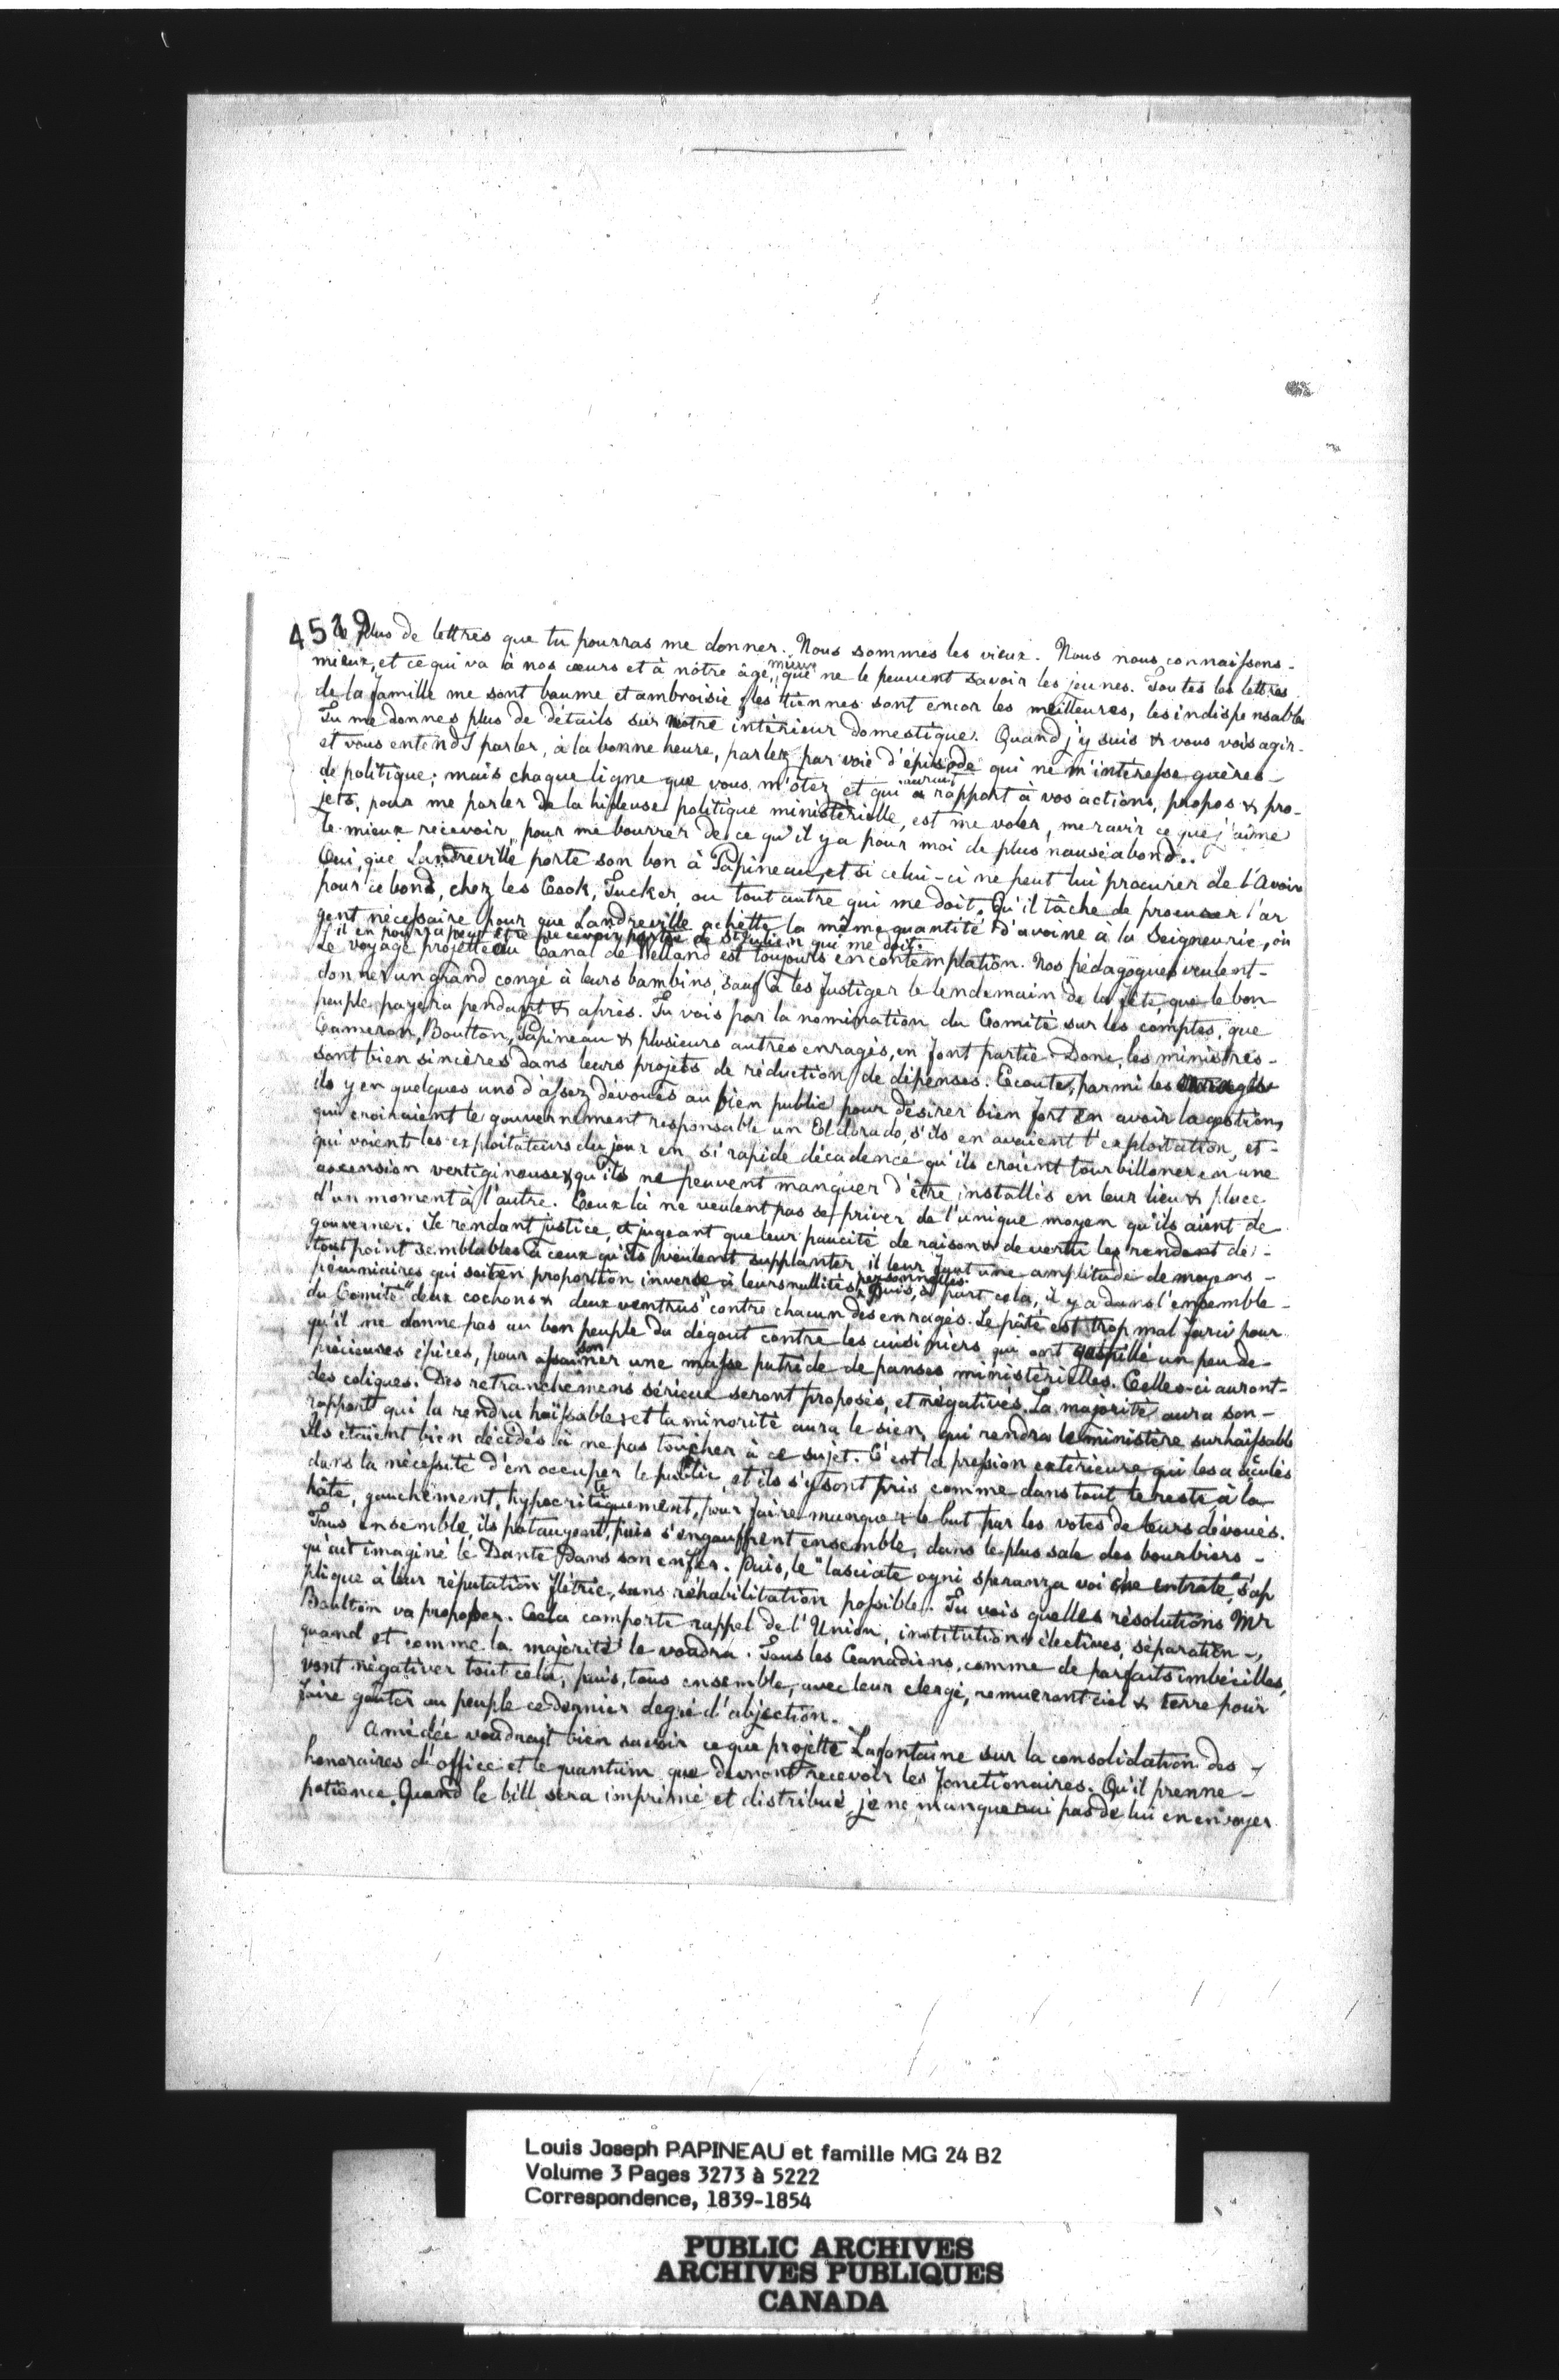 4519
le plus de lettres que tu pourras me donner. Nous sommes les vieux. Nous nous connaissons-
mieux, et ce qui va à nos cœurs et à nôtre âge, mieux que ne le peuvent savoir les jeunes. Toutes les lettres
de la famille me sont baume et ambroisie, les tiennes sont encor les meilleures, les indispensables
Tu me donnes plus de détails sur notre intérieur domestique. Quand j'y suis & vous vois agir-
et vous entends parler, à la bonne heure, parlez par voie d'épisode qui ne m'intéresse guères-
de politique; mais chaque ligne que vous m'ôtez et qui aurait rapport à vos actions, propos & pro-
jets, pour me parler de la hideuse politique ministérielle, est me voler, me ravir ce que j'aime
le mieux recevoir, pour me bourrer de ce qu'il y a pour moi de plus nauséabond..
Oui, que Landreville porte son bon à Papineau, et si celui-ci ne peut lui procurer de l'avoine
pour ce bond, chez les Cook, Tucker, ou tout autre qui me doit, Qu'il tâche de procurer l'ar
gent nécessaire pour que Landreville achette la même quantité d'avoine à la Seigneurie, où
il en pourra peut être recevoir partie de St Julien qui me doit.
Le voyage projetté au Canal de Welland est toujours en contemplation. Nos pédagogues veulent-
donner un grand congé à leurs bambins, sauf à les fustiger le lendemain de la fête, que le bon
peuple payera pendant & après. Tu vois par la nomination du Comité sur les comptes, que
Cameron, Boulton, Papineau & plusieurs autres enragés, en font partie. Donc, les ministres-
sont bien sincères dans leurs projets de réduction de dépenses. Ecoute, parmi les enragés
ils y en quelques uns d'assez dévoués au bien public pour désirer bien fort en avoir la gestion,
qui croiraient le gouvernement responsable un Eldorado, s'ils en avaient l'exploitation, et-
qui voient les exploitateurs du jour en si rapide décadence qu'ils croient tourbilloner en une
ascension vertigineuse & qu'ils ne peuvent manquer d'être installés en leur lieu & place
d'un moment à l'autre. Ceux là ne veulent pas se priver de l'unique moyen qu'ils aient de
gouverner. Se rendant justice, et jugeant que leur paucité de raison & de vertu les rendent de-
tout point semblables à ceux qu'ils veulent supplanter, il leur faut une amplitude de moyens-
pécuniaires qui soit en proportion inverse à leurs nullités personnelles. Puis, à part cela, il y a dans l'ensemble-
du Comité "deux cochons & deux ventrus" contre chacun des enragés. Le pâté est trop mal farci pour
qu'il ne donne pas au bon peuple du dégout contre les cuisiniers qui ont gaspillé un peu de-
précieuses épices, pour assaisonner une masse putride de panses ministérielles. Celles-ci auront-
des coliques. Des retranchemens sérieux seront proposés, et négativés. La majorité aura son-
rapport qui la rendra haïssable, et la minorité aura le sien, qui rendra le ministère surhaïssable
Ils étaient bien décidés à ne pas toucher à ce sujet. C'est la pression extérieure qui les a acculés
dans la nécessité d'en occuper le public, et ils s'y sont pris, comme dans tout le reste, à la
hâte, gauchement, hypocritement, pour faire manquer le but par les votes de leurs dévoués.
Tous ensemble, ils pataugent, puis s'engouffrent ensemble, dans le plus sale des bourbiers-
qu'ait imaginé le Dante dans son enfer. Puis, le "lasciate ogni speranza voi che entrate", s'ap
plique à leur réputation flétrie, sans réhabilitation possible. Tu vois quelles résolutions Mr
Boulton va proposer. Cela comporte rappel de l'Union, institutions électives, séparation-,
quand et comme la majorité le voudra. Tous les Canadiens, comme de parfaits imbécilles,
vont négativer tout cela, puis, tous ensemble, avec leur clergé, remueront ciel & terre pour
faire goûter au peuple ce dernier degré d'abjection.
Amédée voudrait bien savoir ce que projette Lafontaine sur la consolidation des-
honoraires d'office et le quantum que devront recevoir les fonctionaires. Qu'il prenne-
patience. Quand le bill sera imprimé et distribué, je ne manquerai pas de lui en envoyer
Louis Joseph PAPINEAU et famille MG 24 B2
Volume 3 Pages 3273 à 5222
Correspondence, 1839-1854
PUBLIC ARCHIVES
ARCHIVES PUBLIQUES
CANADA